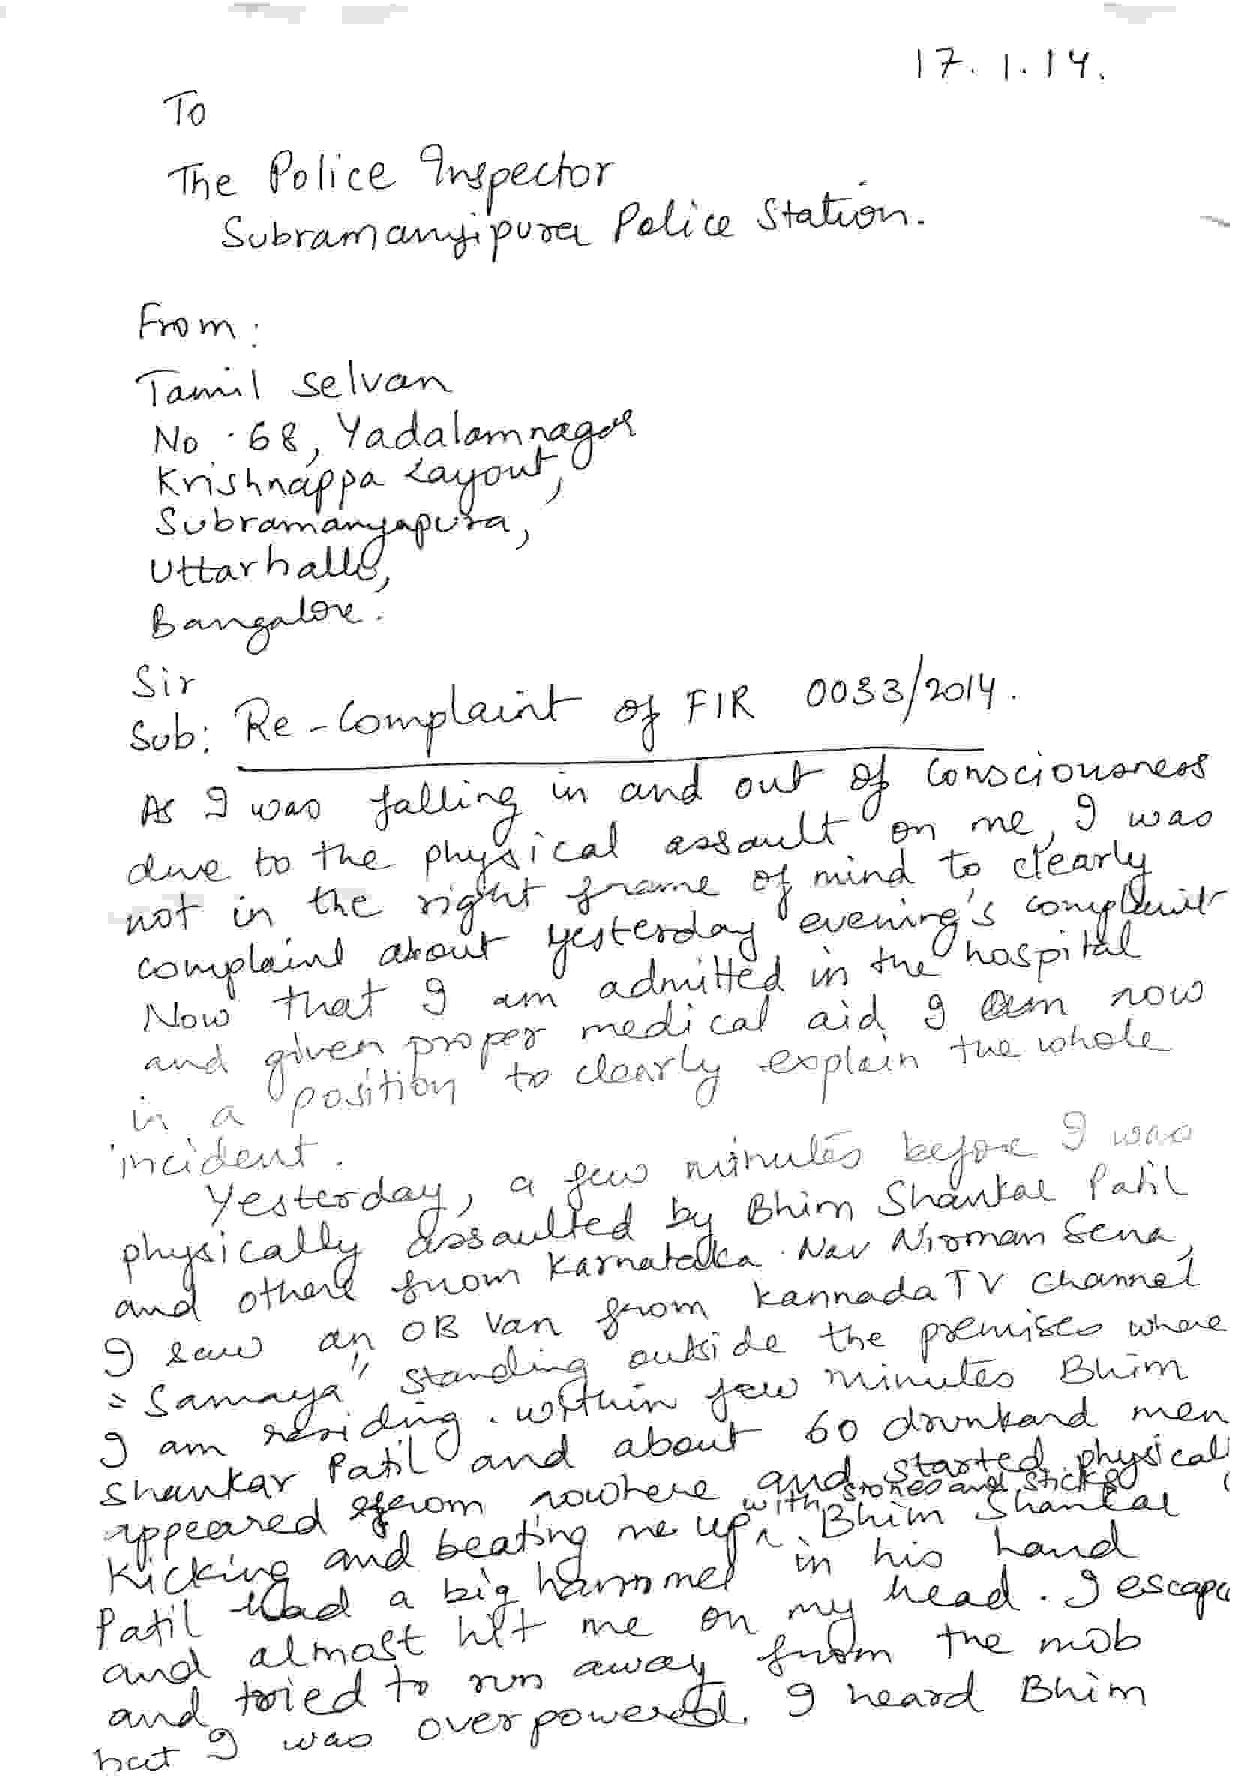 17.1.14.
To
The Police Inspector
Subramanyipura Police Station.
From:
Tamil Selvan
No. 68, Yadalamnagar
Krishnappa Layout,
Subramanyapura,
Uttarhalli,
Bangalore.
Sir
Sub: Re-Complaint of FIR 0033/2014.
As I was falling in and out of consciousness
due to the physical assault on me, I was
not in the right frame of mind to clearly
complaint about yesterday evening's complaint
Now that I am admitted in the hospital
and given proper medical aid I am now
in a position to clearly explain the whole
incident.
Yesterday, a few minutes before I was
physically assaulted by Bhim Shankar Patil
and others from Karnataka Nav Nirman Sena,
I saw an OB Van from Kannada TV Channel
"Samaya" standing outside the premises where
I am residing. Within few minutes Bhim
Shankar Patil and about 60 drunkard men
appeared from nowhere and started physicall
kicking and beating me up with stones and sticks. Bhim Shankar
Patil had a big hammer in his hand
and almost hit me on my head. I escape
and tried to run away from the mob
but I was overpowered. I heard Bhim